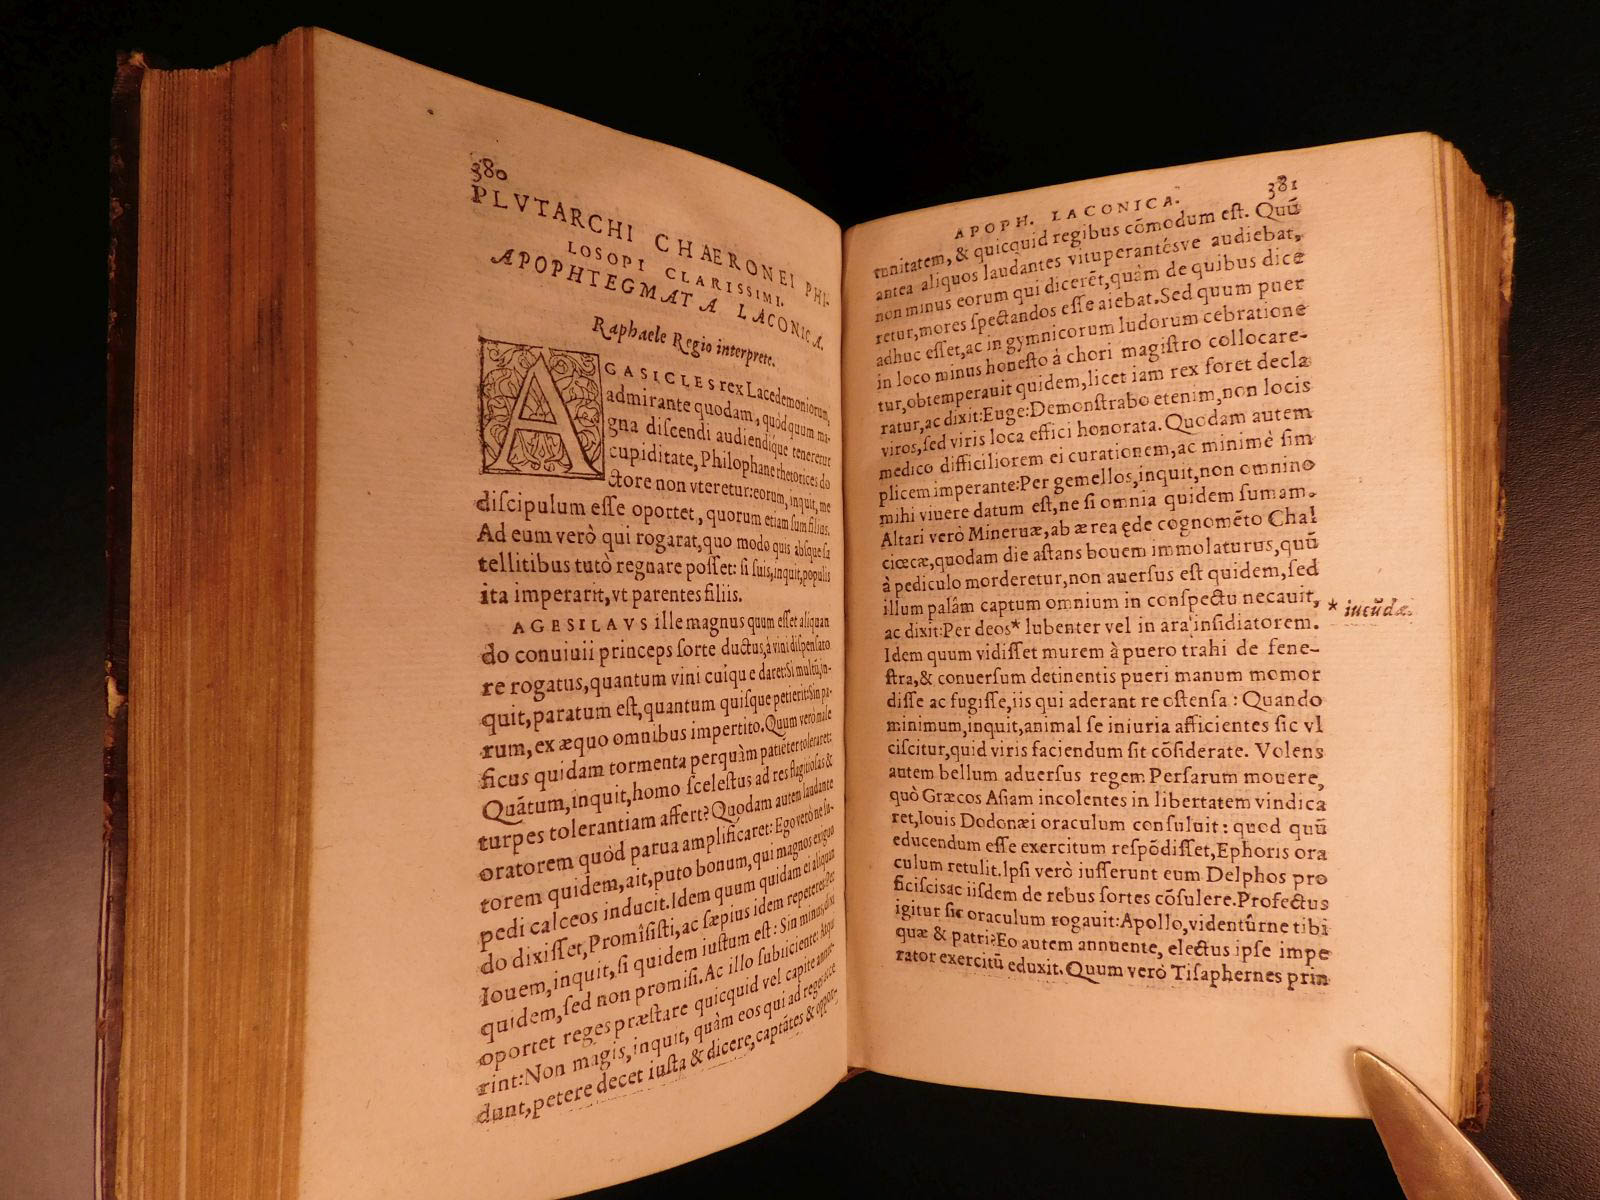 380
PLVTARCHI CHAERONEI PHI-
LOSOPI CLARISSIMI.
APOPHTEGMATA LACONICA.
Raphaele Regio interprete.
AGASICLES rex Lacedemoniorum,
admirante quodam, quòd quum ma-
gna discendi audiendique teneretur
cupiditate, Philophane rhetorices do
ctore non vteretur: eorum, inquit, me
discipulum esse oportet, quorum etiam sum filius.
Ad eum verò qui rogarat, quo modo quis absque sa
tellitibus tutò regnare posset: si suis, inquit, populis
ita imperarit, vt parentes filiis.
AGESILAVS ille magnus quum esset aliquan
do conuiuii princeps sorte ductus, à vini dispensato
re rogatus, quantum vini cuique daret: Si multũ, in-
quit, paratum est, quantum quisque petierit: Sin pa-
rum, ex æquo omnibus impertito. Quum verò male
ficus quidam tormenta perquàm patiẽter toleraret:
Quãtum, inquit, homo scelestus ad res flagitiosas &
turpes tolerantiam affert? Quodam autem laudante
oratorem quòd parua amplificaret: Ego verò ne su-
torem quidem, ait, puto bonum, qui magnos exiguo
pedi calceos inducit. Idem quum quidam ei aliquan
do dixisset, Promîsisti, ac sæpius idem repeteret: Per
Iouem, inquit, si quidem iustum est: Sin minus, dixi
quidem, sed non promisi. Ac illo subiiciente: Atqui
oportet reges præstare quicquid vel capite annue-
rint: Non magis, inquit, quàm eos qui ad reges acce
dunt, petere decet iusta & dicere, captãtes & oppor-
APOPH. LACONICA. 381
tunitatem, & quicquid regibus cõmodum est. Quũ
antea aliquos laudantes vituperantésve audiebat,
non minus eorum qui dicerẽt, quàm de quibus dice
retur, mores spectandos esse aiebat. Sed quum puer
adhuc esset, ac in gymnicorum ludorum cebratione
in loco minus honesto à chori magistro collocare-
tur, obtemperauit quidem, licet iam rex foret decla
ratur, ac dixit: Euge: Demonstrabo etenim, non locis
viros, sed viris loca effici honorata. Quodam autem
medico difficiliorem ei curationem, ac minimè sim
plicem imperante: Per gemellos, inquit, non omnino
mihi viuere datum est, ne si omnia quidem sumam.
Altari verò Mineruæ, ab ærea ęde cognomẽto Chal
ciœcæ, quodam die astans bouem immolaturus, quũ
à pediculo morderetur, non auersus est quidem, sed
illum palâm captum omnium in conspectu necauit,
ac dixit: Per deos* lubenter vel in ara insidiatorem.
* iucũdæ.
Idem quum vidisset murem à puero trahi de fene-
stra, & conuersum detinentis pueri manum momor
disse ac fugisse, iis qui aderant re ostensa: Quando
minimum, inquit, animal se iniuria afficientes sic vl
ciscitur, quid viris faciendum sit cõsiderate. Volens
autem bellum aduersus regem Persarum mouere,
quò Græcos Asiam incolentes in libertatem vindica
ret, Iouis Dodonæi oraculum consuluit: quod quũ
educendum esse exercitum respõdisset, Ephoris ora
culum retulit. Ipsi verò iusserunt eum Delphos pro
ficisci ac iisdem de rebus sortes cõsulere. Profectus
igitur sic oraculum rogauit: Apollo, videntûrne tibi
quæ & patri? Eo autem annuente, electus ipse impe
rator exercitũ eduxit. Quum verò Tisaphernes prin